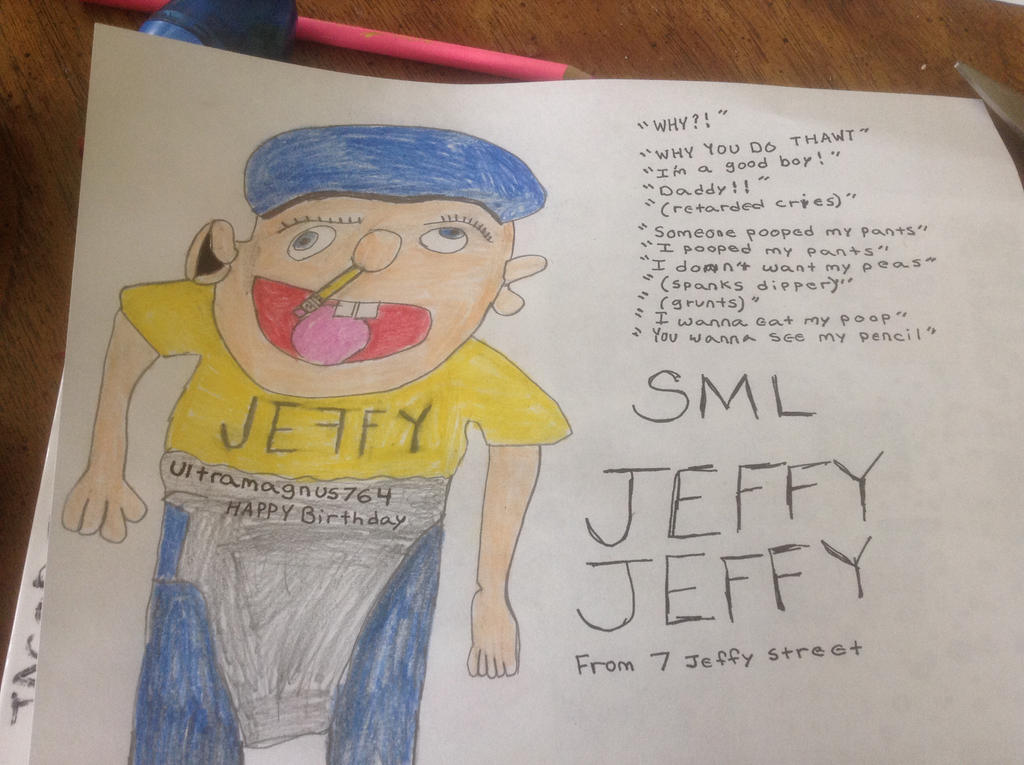 JEFFY
Ultramagnus764
HAPPY Birthday
"WHY?!"
"WHY YOU DO THAWT"
"I'm a good boy!"
"Daddy!!"
"(retarded cries)"
"Someone pooped my pants"
"I pooped my pants"
"I don't want my peas"
"(spanks dippery"
"(grunts)"
"I wanna eat my poop"
"You wanna see my pencil"
SML
JEFFY
JEFFY
From 7 Jeffy street